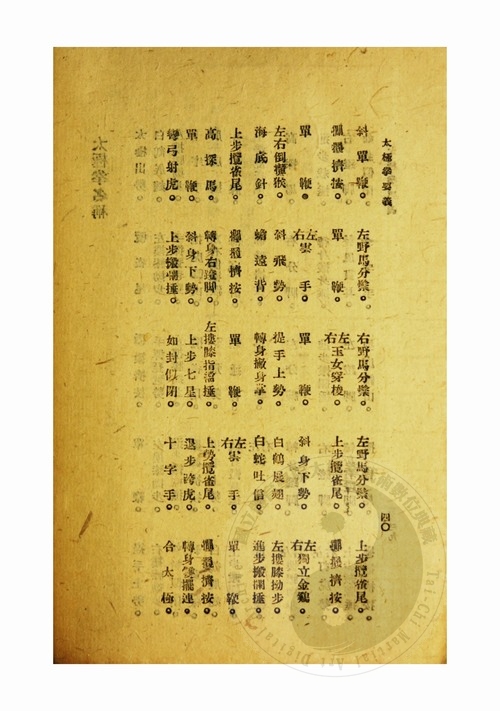 太極拳要義
四〇
斜單鞭。左野馬分鬃。右野馬分鬃。左野馬分鬃。上步攬雀尾。
掤攦擠按。單鞭。左右玉女穿梭。上步攬雀尾。掤攦擠按。
單鞭。左右雲手。單鞭。斜身下勢。左右獨立金鷄。
左右倒攆猴。斜飛勢。提手上勢。白鶴展翅。左摟膝拗步。
海底針。背。轉身撇身拳。白蛇吐信。進步搬攔捶。
上步攬雀尾。掤攦擠按。單鞭。左右雲手。單鞭。
高探馬。轉身右蹬脚。左摟膝指襠捶。上勢攬雀尾。掤攦擠按。
單鞭。斜身下勢。上步七星。退步跨虎。轉身雙擺連。
彎弓射虎。上步搬攔捶。如封似閉。十字手。合太極。